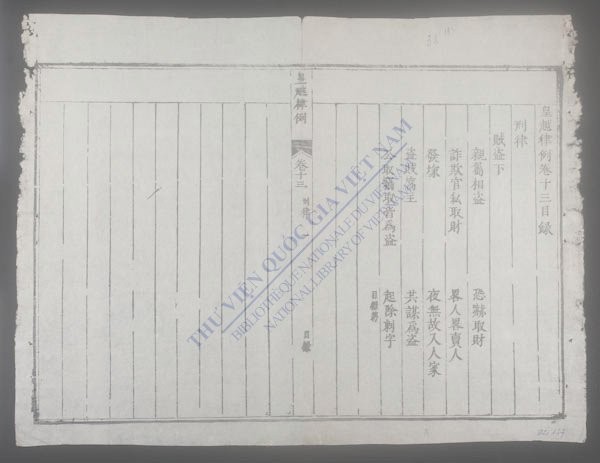 皇越律例卷十三目錄
刑律
賊盜下
親屬相盜 恐嚇取財
詐欺官私取財 畧人畧賣人
發塚 夜無故入人家
盜賊窩主 共謀為盜
公取竊取皆為盜 起除刺字
目錄終
皇越律例 卷十三 刑律 目錄
THƯ VIỆN QUỐC GIA VIỆT NAM
BIBLIOTHEQUE NATIONALE DU VIETNAM
NATIONAL LIBRARY OF VIETNAM